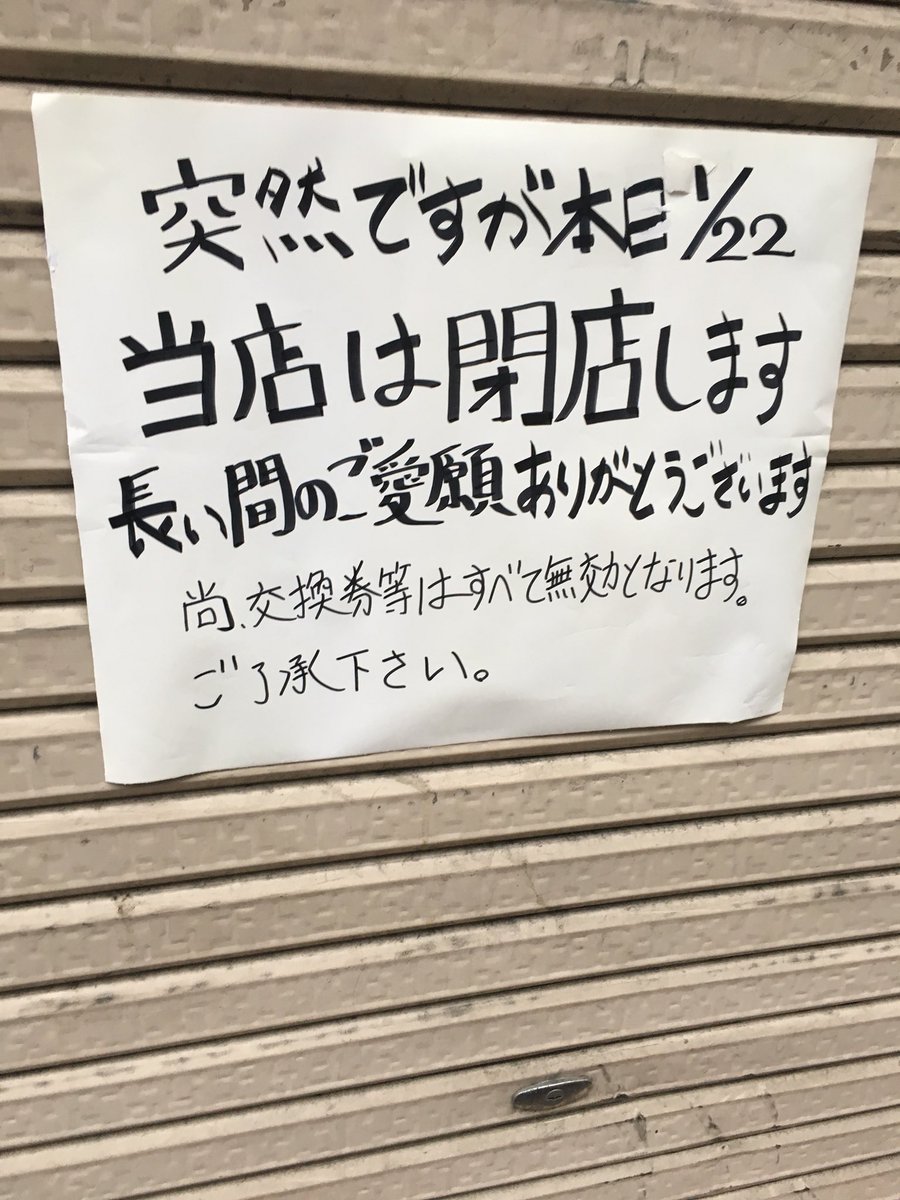 突然ですが本日1/22
当店は閉店します
長い間のご愛願ありがとうございます
尚、交換券等はすべて無効となります。
ご了承下さい。